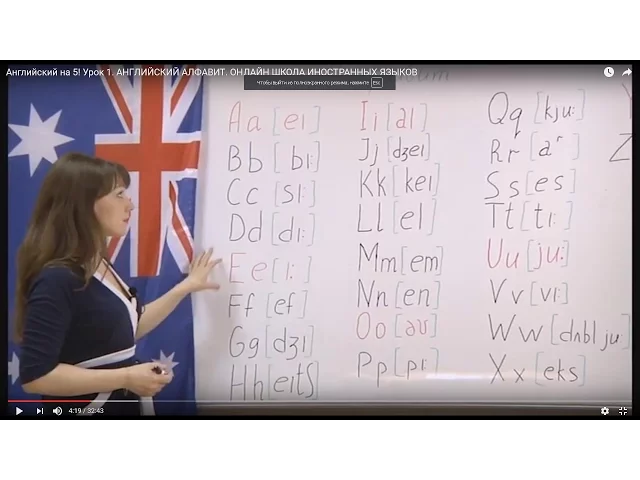 Английский на 5! Урок 1. АНГЛИЙСКИЙ АЛФАВИТ. ОНЛАЙН ШКОЛА ИНОСТРАННЫХ ЯЗЫКОВ
Чтобы выйти из полноэкранного режима, нажмите Esc
Aa [eɪ]
Bb [bɪ:]
Cc [sɪ:]
Dd [dɪ:]
Ee [ɪ:]
Ff [ef]
Gg [dʒɪ]
Hh [eɪtʃ]
Ii [aɪ]
Jj [dʒeɪ]
Kk [keɪ]
Ll [el]
Mm [em]
Nn [en]
Oo [əʊ]
Pp [pɪ:]
Qq [kju:]
Rr [aʳ]
Ss [es]
Tt [tɪ:]
Uu [ju:]
Vv [vɪ:]
Ww [dʌbl ju]
Xx [eks]
Y
Z
4:19 / 32:43